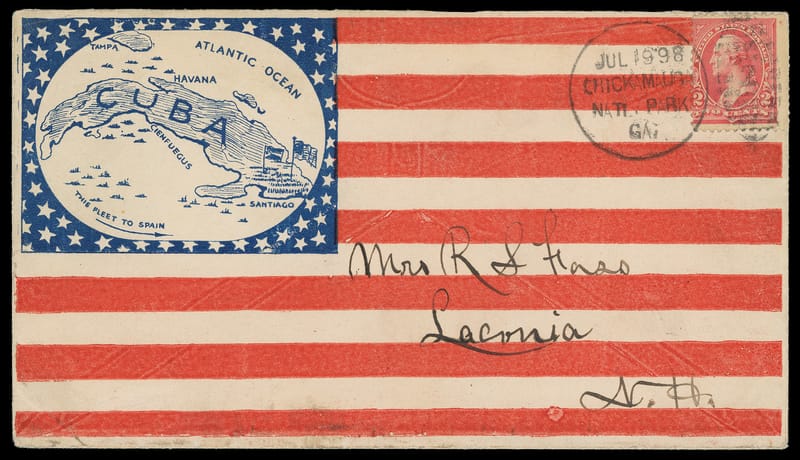 TAMPA
ATLANTIC OCEAN
HAVANA
CUBA
CIENFUEGUS
SANTIAGO
THIS FLEET TO SPAIN
JUL 1998
CHICKAMAUGA
NAT'L PARK
GA.
2 2
Mrs R S Foss
Laconia
N. H.